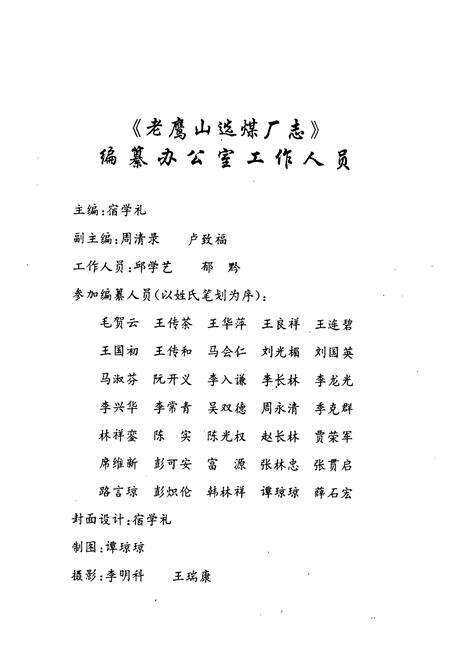 《老鹰山选煤厂志》
编纂办公室工作人员
主编:宿学礼
副主编:周清录 卢致福
工作人员:邱学艺 郁黔
参加编纂人员(以姓氏笔划为序):
毛贺云 王传荼 王华萍 王良祥 王连碧
王国初 王传和 马会仁 刘光楣 刘国英
马淑芬 阮开义 李入谦 李长林 李龙光
李兴华 李常青 吴双德 周永清 李克群
林祥銮 陈实 陈光权 赵长林 贾荣军
席维新 彭可安 富源 张林忠 张贯启
路言琼 彭炽伦 韩林祥 谭琼琼 薛石宏
封面设计:宿学礼
制图:谭琼琼
摄影:李明科 王瑞康